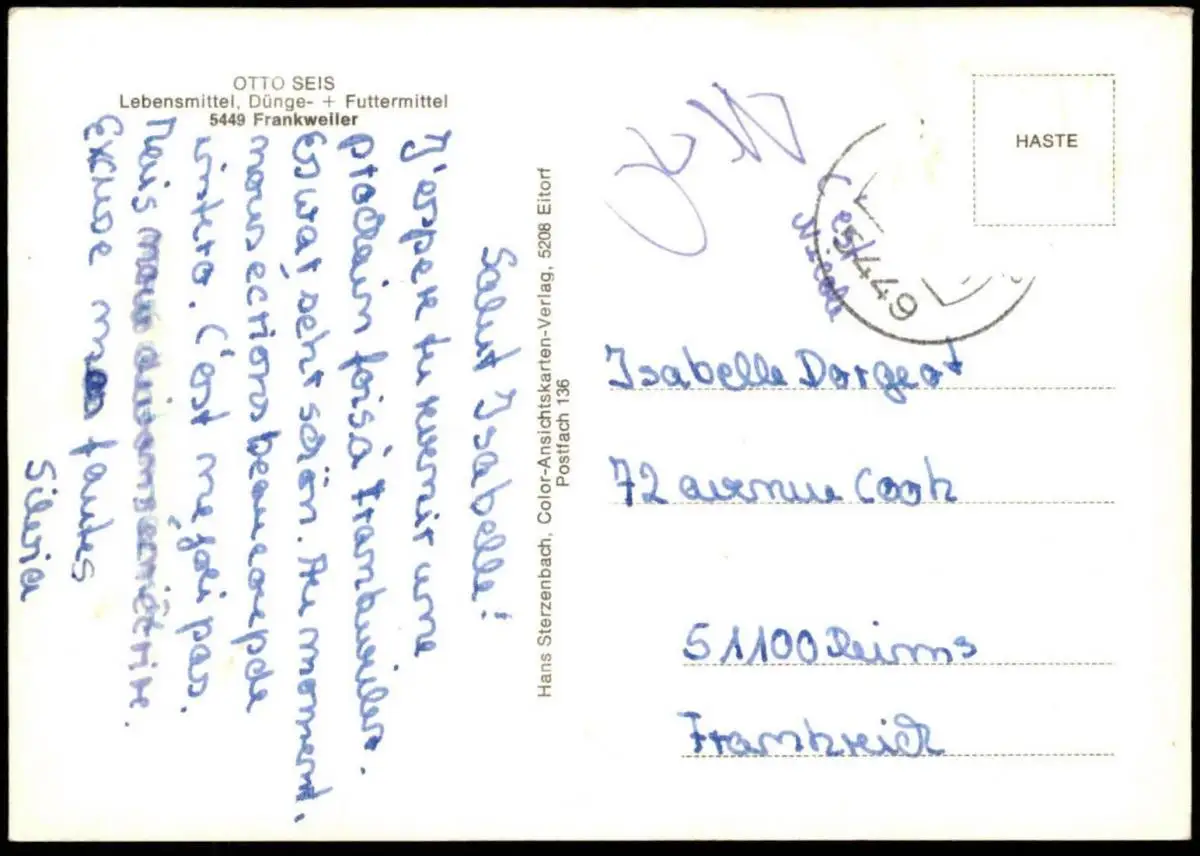 OTTO SEIS
Lebensmittel, Dünge- + Futtermittel
5449 Frankweiler
Salut Isabelle!
J'espere tu vernir une
prochain fois à Frankweiler.
Es wat seht schön. Au moment,
nous ecrions beaucoup de
intero. C'est ne joi pas.
Mais nous
Excuse mes fautes
Silvia
Hans Sterzenbach, Color-Ansichtskarten-Verlag, 5208 Eitorf
Postfach 136
HASTE
C'
est
Nicole
5449
Isabelle Dorgeot
72 avenue Cook
51100 Reims
Frankreich